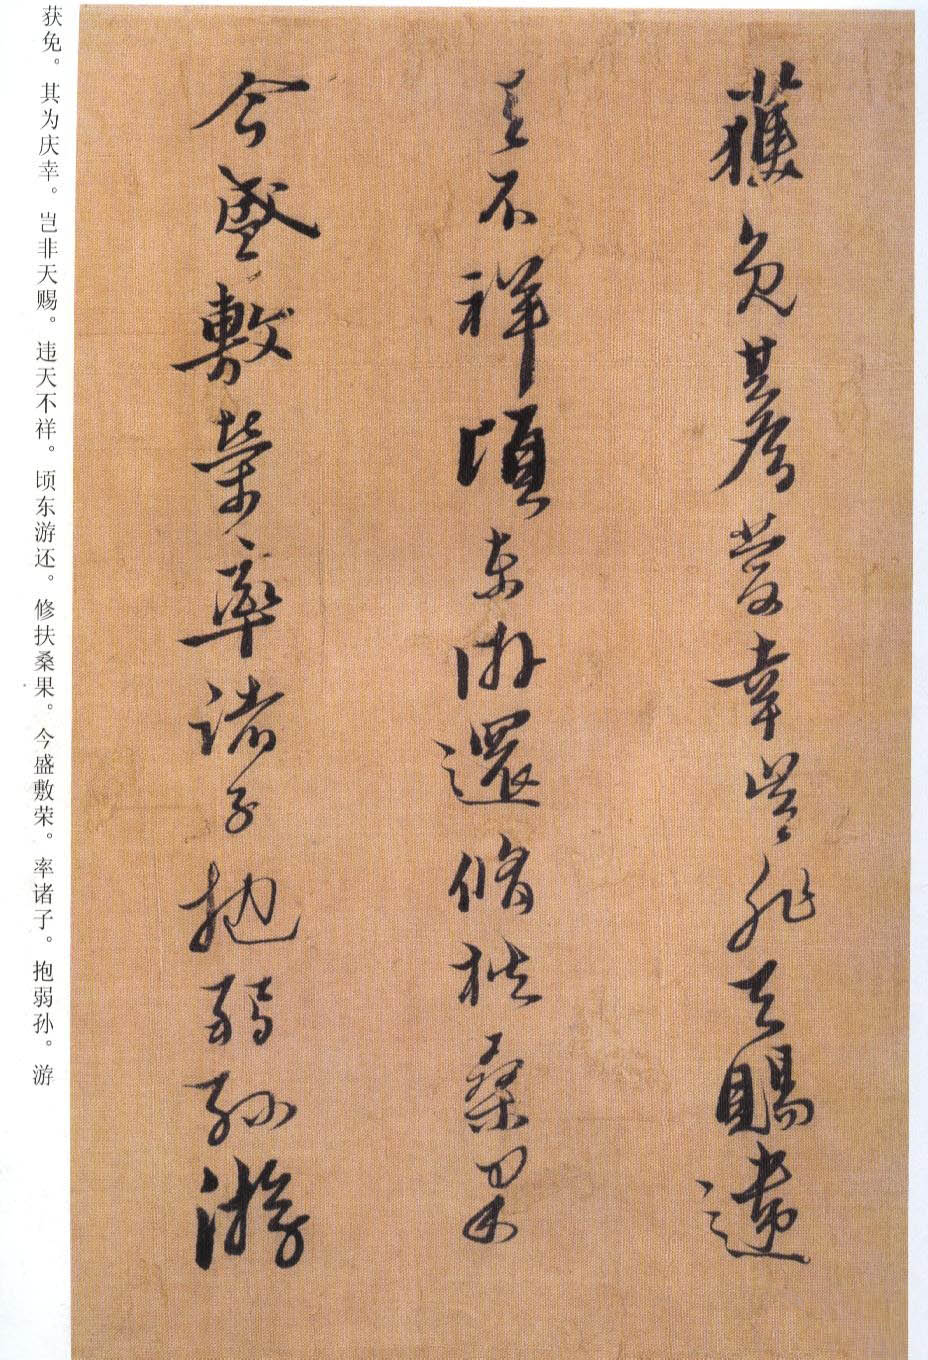 獲免其為慶幸豈非天賜違
天不祥頃東游還修扶桑果
今盛敷榮率諸子抱弱孫游
获免。其为庆幸。岂非天赐。违天不祥。顷东游还。修扶桑果。今盛敷荣。率诸子。抱弱孙。游